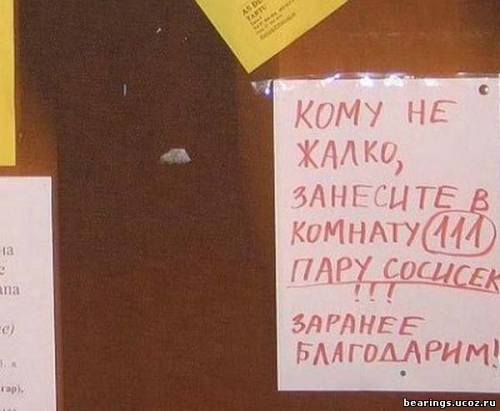 AS DE
TARTU
КОМУ НЕ
ЖАЛКО,
ЗАНЕСИТЕ В
КОМНАТУ 111
ПАРУ СОСИСЕК
!!!
ЗАРАНЕЕ
БЛАГОДАРИМ!
на
с
апа
е)
гар).
bearings.ucoz.ru